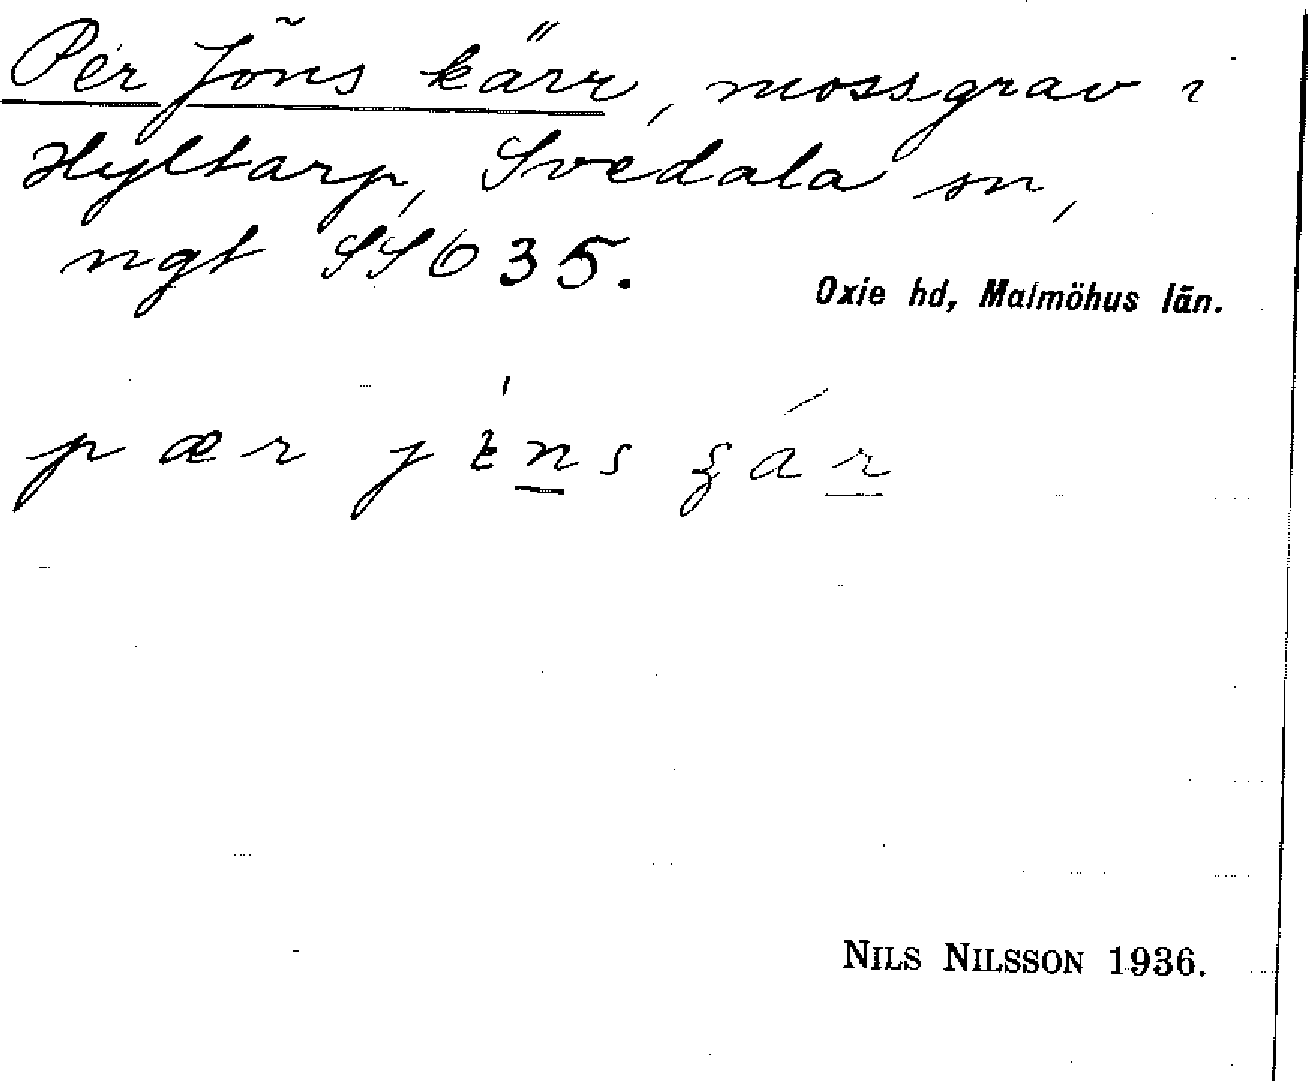 Per Jöns kärr, mossgrav i
Hyltarp, Svedala sn,
ngt SSÖ 35.
Oxie hd, Malmöhus län.
pær j
NILS NILSSON 1936.